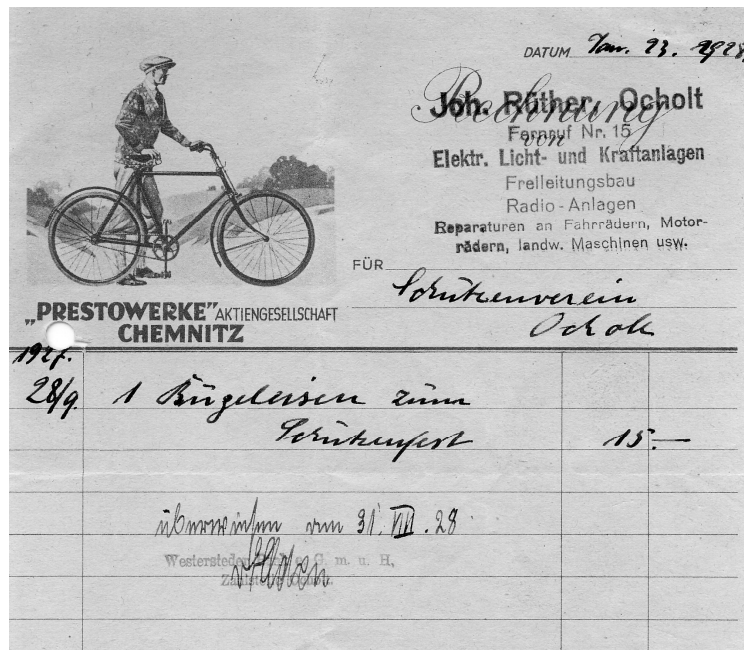 DATUM Jan. 23. 1928.
Rechnung
von
Joh. Rüther, Ocholt
Fernruf Nr. 15
Elektr. Licht- und Kraftanlagen
Freileitungsbau
Radio-Anlagen
Reparaturen an Fahrrädern, Motor-
rädern, landw. Maschinen usw.
FÜR
Schützenverein
Ocholt
„PRESTOWERKE” AKTIENGESELLSCHAFT
CHEMNITZ
1927.
28/9. 1 Bügeleisen zum
Schützenfest 15.—
überwiesen am 31. VIII. 28
Westersteder G. m. u. H,
Ocholt